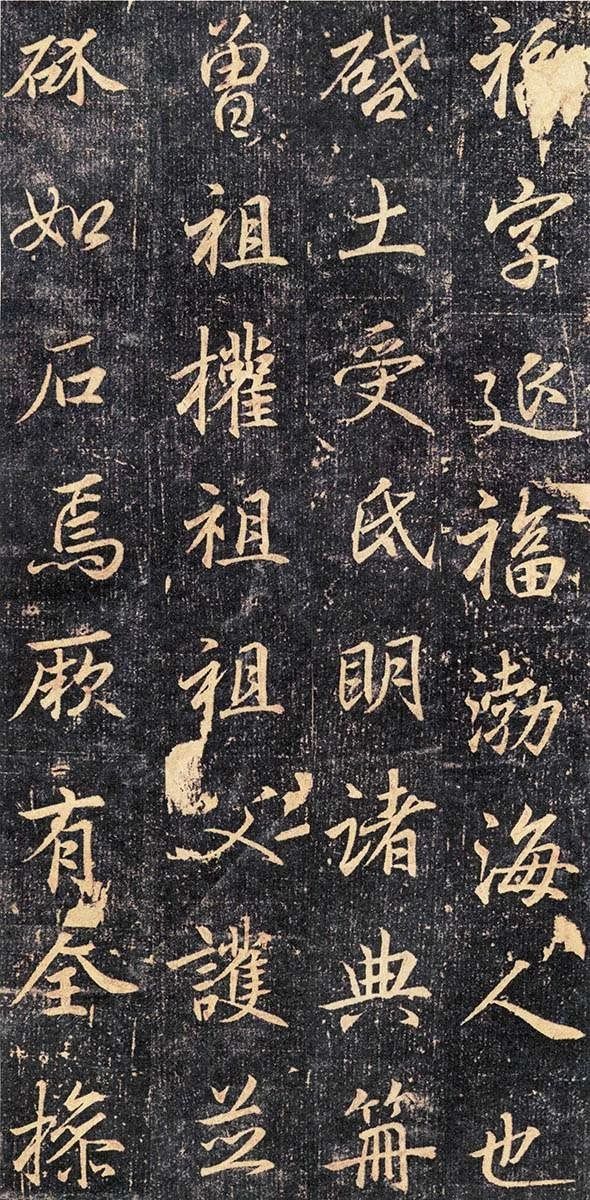 福字延福渤海人也
啓土受氏明諸典笧
曾祖權祖祖父護並
砎如石焉厥有全操